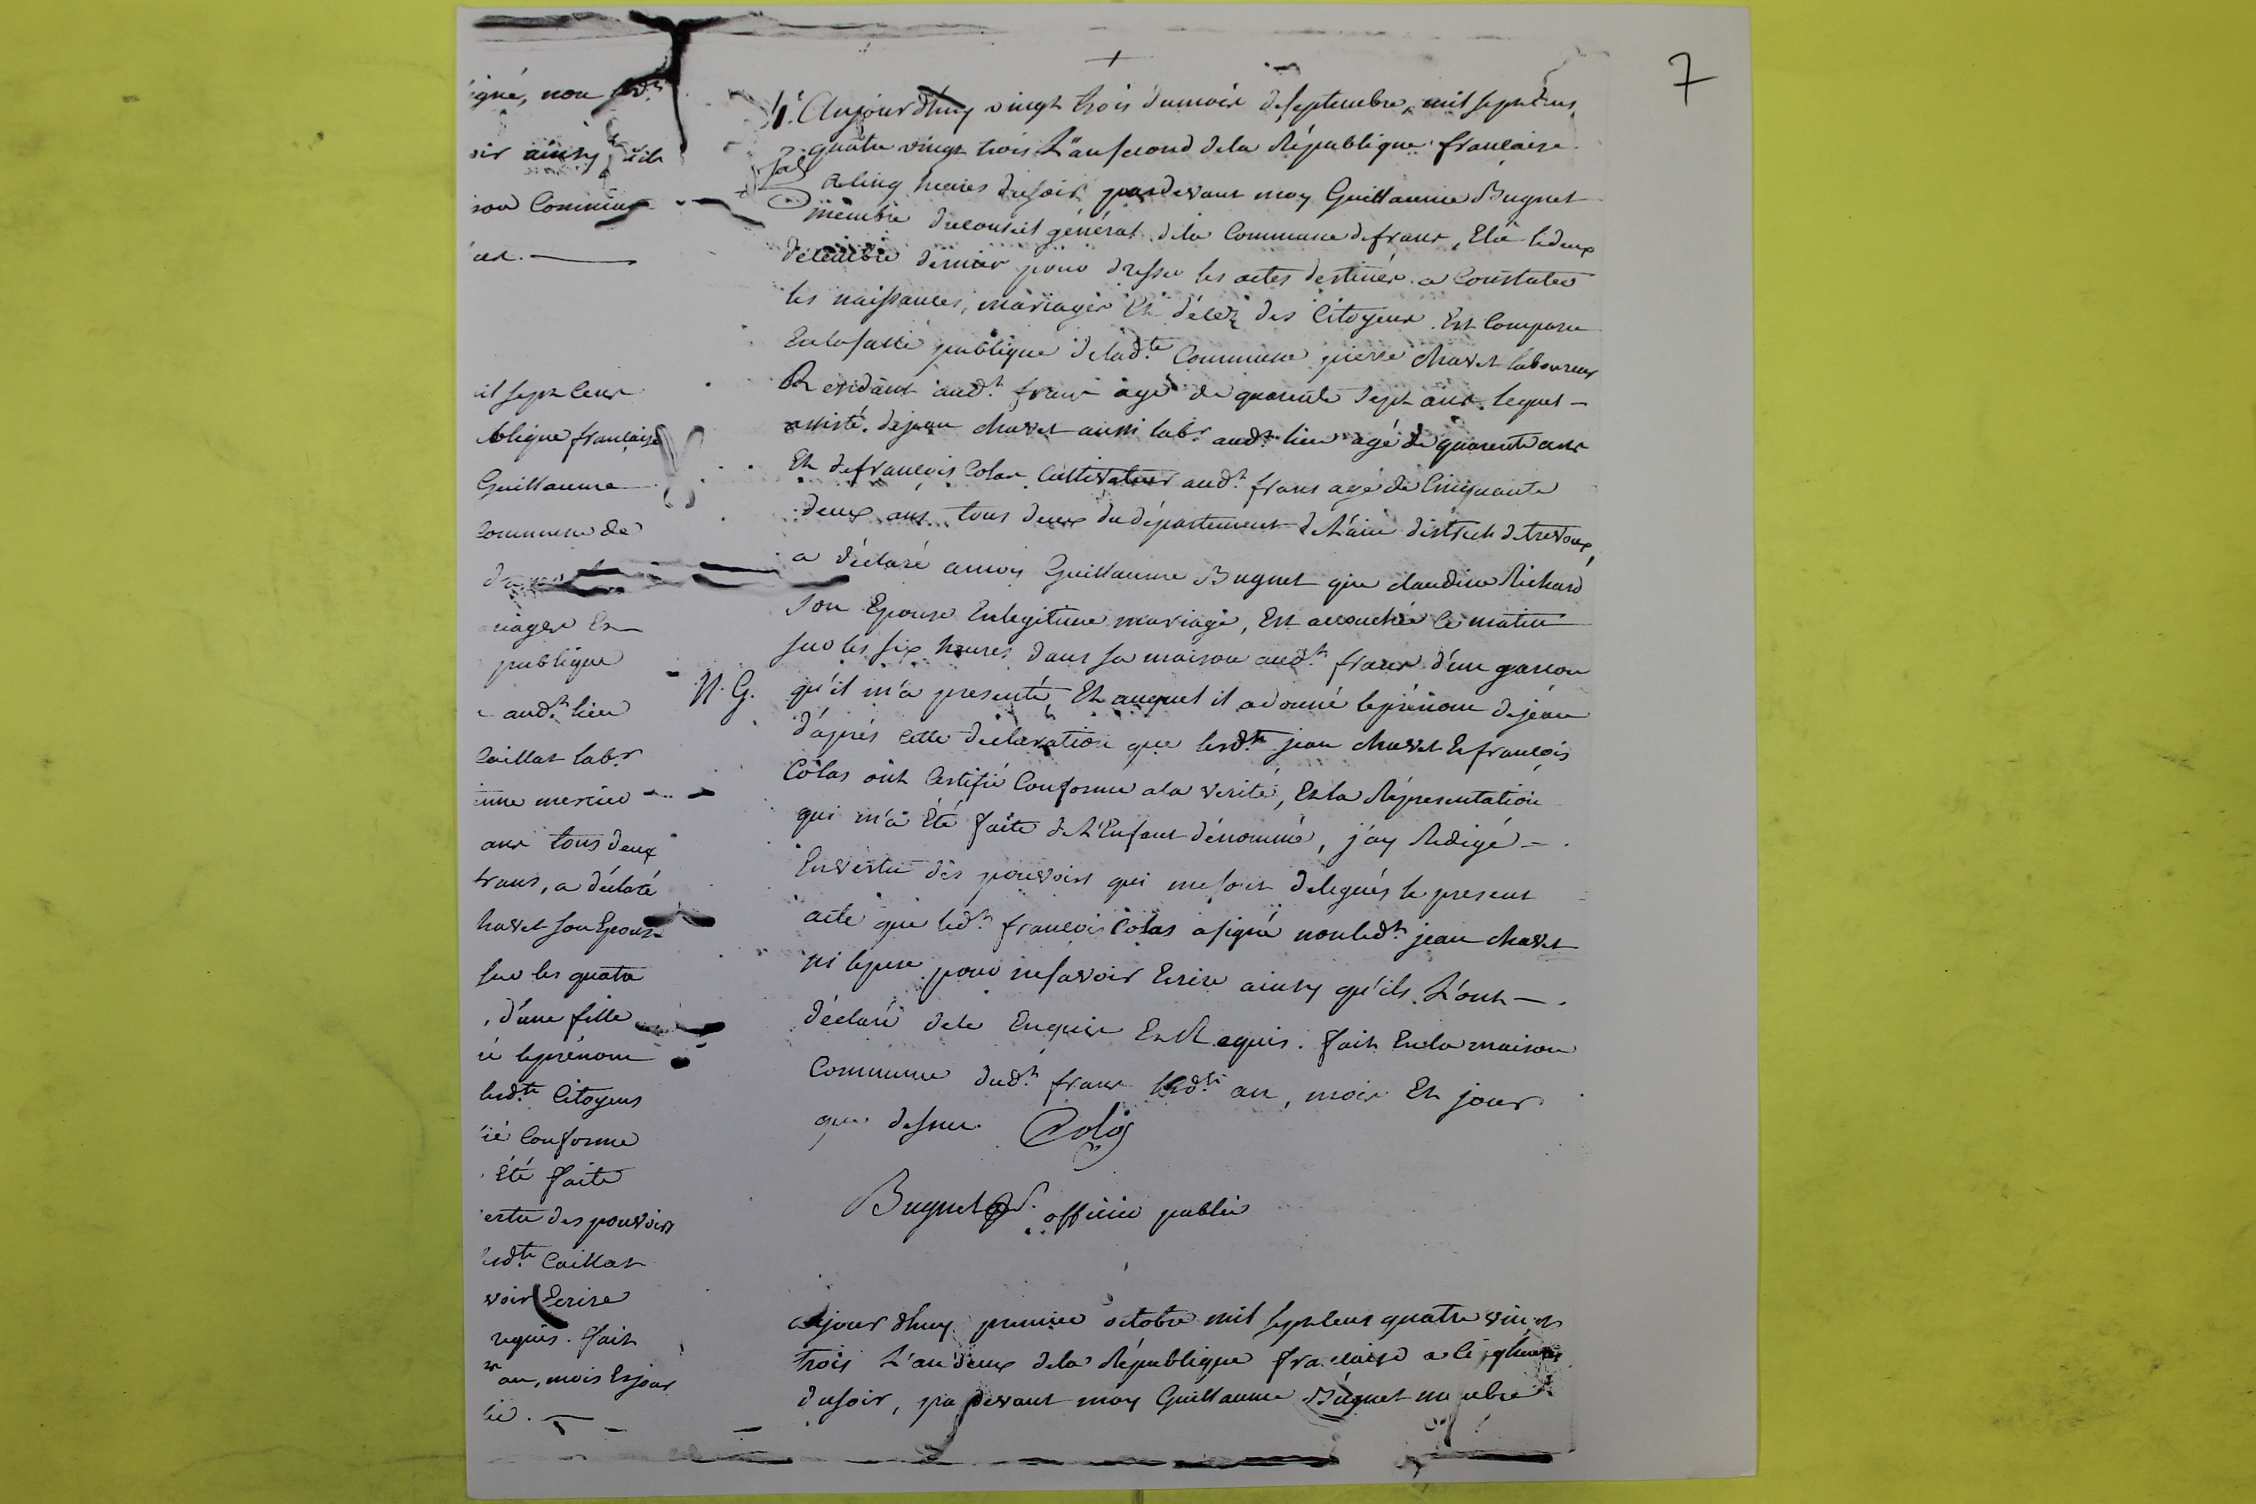 7
igné, non led.t
oir ainsy qu'ils
son Commune
us.
il sept Cens
ublique française
Guillaume
Commune de
riages Et
publique
aud.t lieu
Caillat lab.r
mercier
ans tous deux
frans, a déclaré
havet son Epouse
sur les quatre
, d'une fille
é leprénom
lesd.ts Citoyens
ié Conforme
Été faite
ertu des pouvoirs
led.ts Caillat
voir Ecrire
requis. fait
an, mois Et jour
lic.
Aujourd'huy vingt trois dumois deseptembre, mil sept Cens
quatre vingt trois L'an second dela République française
a Cinq heures dusoir pardevant moy Guillaume Buguet
membre duconseil général dela Commune defrans, Elû ledeux
décembre dernier pour dresser les actes destinés a Constater
les naissances, mariages Et décéz des Citoyens. Est Comparu
Enlasalle publique delad.te Commune pierre chavet laboureur
Residant aud.t frans agé de quarente sept ans. lequel
assisté dejean chavet aussi lab.r aud.t lieu agé de quarente ans
Et defrançois Colas Cultivateur aud.t frans agé de Cinquante
deux ans tous deux du département deL'ain district detrevoux,
a déclaré amoy Guillaume Buguet que claudine Richard
son Epouse Enlegitime mariage, Est accouchée Ce matin
sur les six heures dans sa maison aud.t frans d'un garson
N. G. qu'il m'a presenté, Et auquel il adonné leprénom dejean
d'après Cette déclaration que lesd.ts jean chavet Et françois
Colas ont Certifié Conforme ala verité, Et la Répresentation
qui m'a Été faite deL'Enfant dénommé, j'ay Redigé
Envertu des pouvoirs qui mesont delegués le present
acte que led.t françois Colas asigné non led.t jean chavet
ni lepere pour nesavoir Ecrire ainsy qu'ils L'ont
déclaré dece Enquis Et Requis. fait Enla maison
Commune dud.t frans lesd.ts an, mois Et jour
que dessus. Colas
Buguet officier public
ajourdhuy premier octobre mil septcens quatre vingt
trois L'an deux dela République française a Cinq heures
dusoir, pardevant moy Guillaume Buguet membre